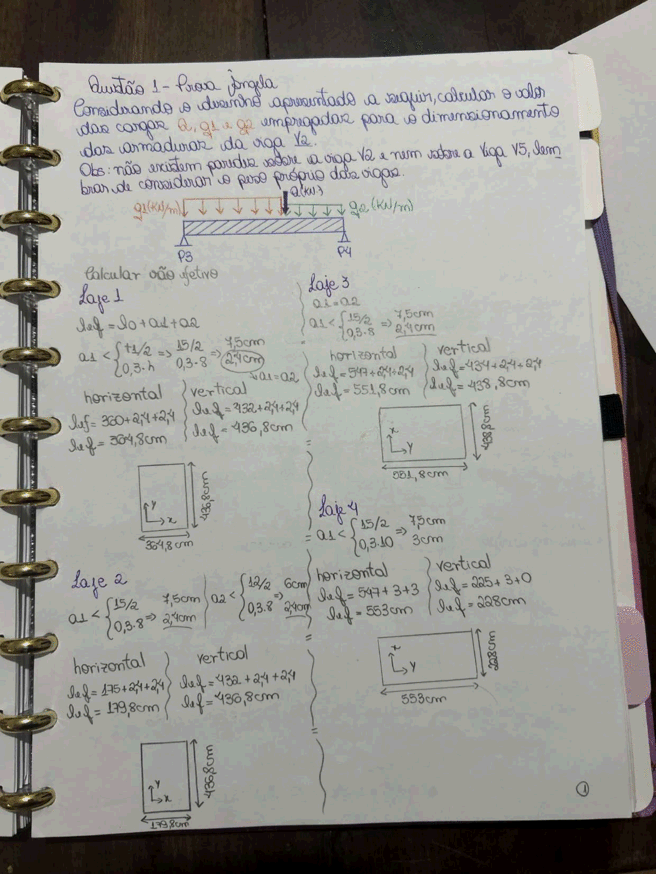 Questão 1 - Prova Ângela
Considerando o desenho apresentado a seguir, calcular o valor
das cargas Q, g1 e g2 empregadas para o dimensionamento
das armaduras da viga V2.
Obs: não existem paredes sobre a viga V2 e nem sobre a Viga V5, lem
brar de considerar o peso próprio das vigas.
g1(KN/m) Q(KN) g2 (KN/m)
P3 P4
Calcular vão efetivo
Laje 1
lef = l0 + a1 + a2
a1 < { t1/2 => 15/2 => 7,5cm
0,3.h 0,3.8 2,4cm
a1 = a2
horizontal
lef = 360+2,4+2,4
lef = 364,8cm
vertical
lef = 432+2,4+2,4
lef = 436,8cm
y
x
436,8cm
364,8cm
Laje 2
a1 < { 15/2 => 7,5cm
0,3.8 2,4cm
a2 < { 12/2 => 6cm
0,3.8 2,4cm
horizontal
lef = 175+2,4+2,4
lef = 179,8cm
vertical
lef = 432+2,4+2,4
lef = 436,8cm
y
x
436,8cm
179,8cm
Laje 3
a1 = a2
a1 < { 15/2 => 7,5cm
0,3.8 2,4cm
horizontal
lef = 547+2,4+2,4
lef = 551,8cm
vertical
lef = 434+2,4+2,4
lef = 438,8cm
x
y
438,8cm
551,8cm
Laje 4
a1 < { 15/2 => 7,5cm
0,3.10 3cm
horizontal
lef = 547+3+3
lef = 553cm
vertical
lef = 225+3+0
lef = 228cm
x
y
228cm
553cm
1